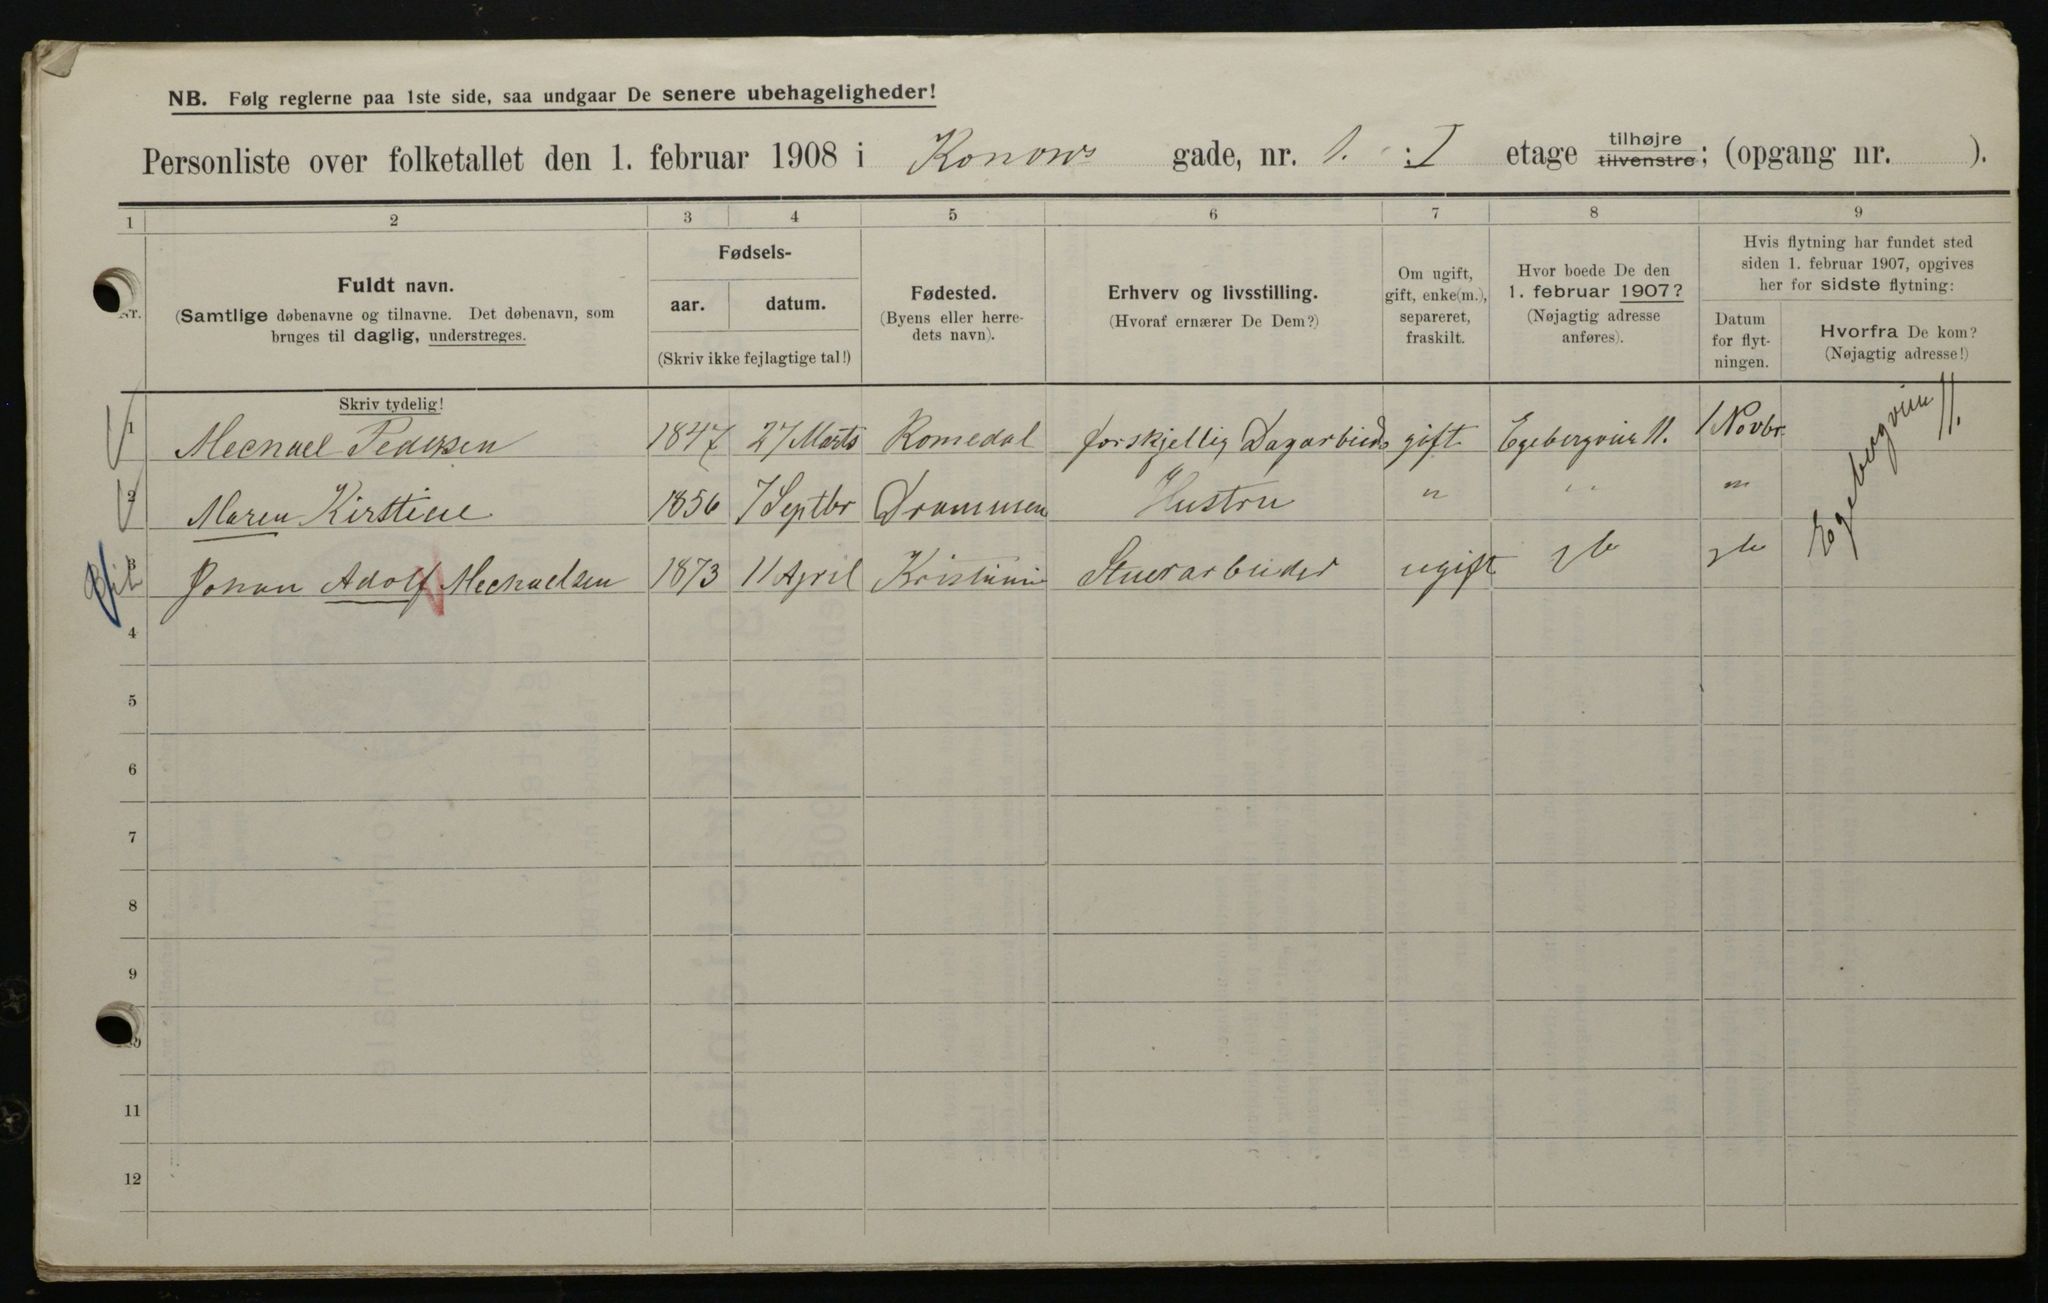 NB. Følg reglerne paa 1ste side, saa undgaar De senere ubehageligheder!
Personliste over folketallet den 1. februar 1908 i Konows gade, nr. 1. :I etage tilhøjre tilvenstre; (opgang nr. ).
1 2 3 4 5 6 7 8 9
Nr.
Fuldt navn.
(Samtlige døbenavne og tilnavne. Det døbenavn, som
bruges til daglig, understreges.
Skriv tydelig!
Fødsels-
aar. datum.
(Skriv ikke fejlagtige tal!)
Fødested.
(Byens eller herre-
dets navn).
Erhverv og livsstilling.
(Hvoraf ernærer De Dem?)
Om ugift,
gift, enke(m.),
separeret,
fraskilt.
Hvor boede De den
1. februar 1907?
(Nøjagtig adresse
anføres).
Hvis flytning har fundet sted
siden 1. februar 1907, opgives
her for sidste flytning:
Datum
for flyt-
ningen.
Hvorfra De kom?
(Nøjagtig adresse!)
1 Mechael Pedersen 1847 27 Marts Romedal forskjellig Dagarbeide gift Egebergveien 11. 1 Novbr. Egebergveien 11.
2 Maren Kirstine 1856 7 Septbr Drammen Hustru " " "
3 Johan Adolf Mechaelsen 1873 11 April Kristiania Stuerarbeider ugift
4
5
6
7
8
9
10
11
12